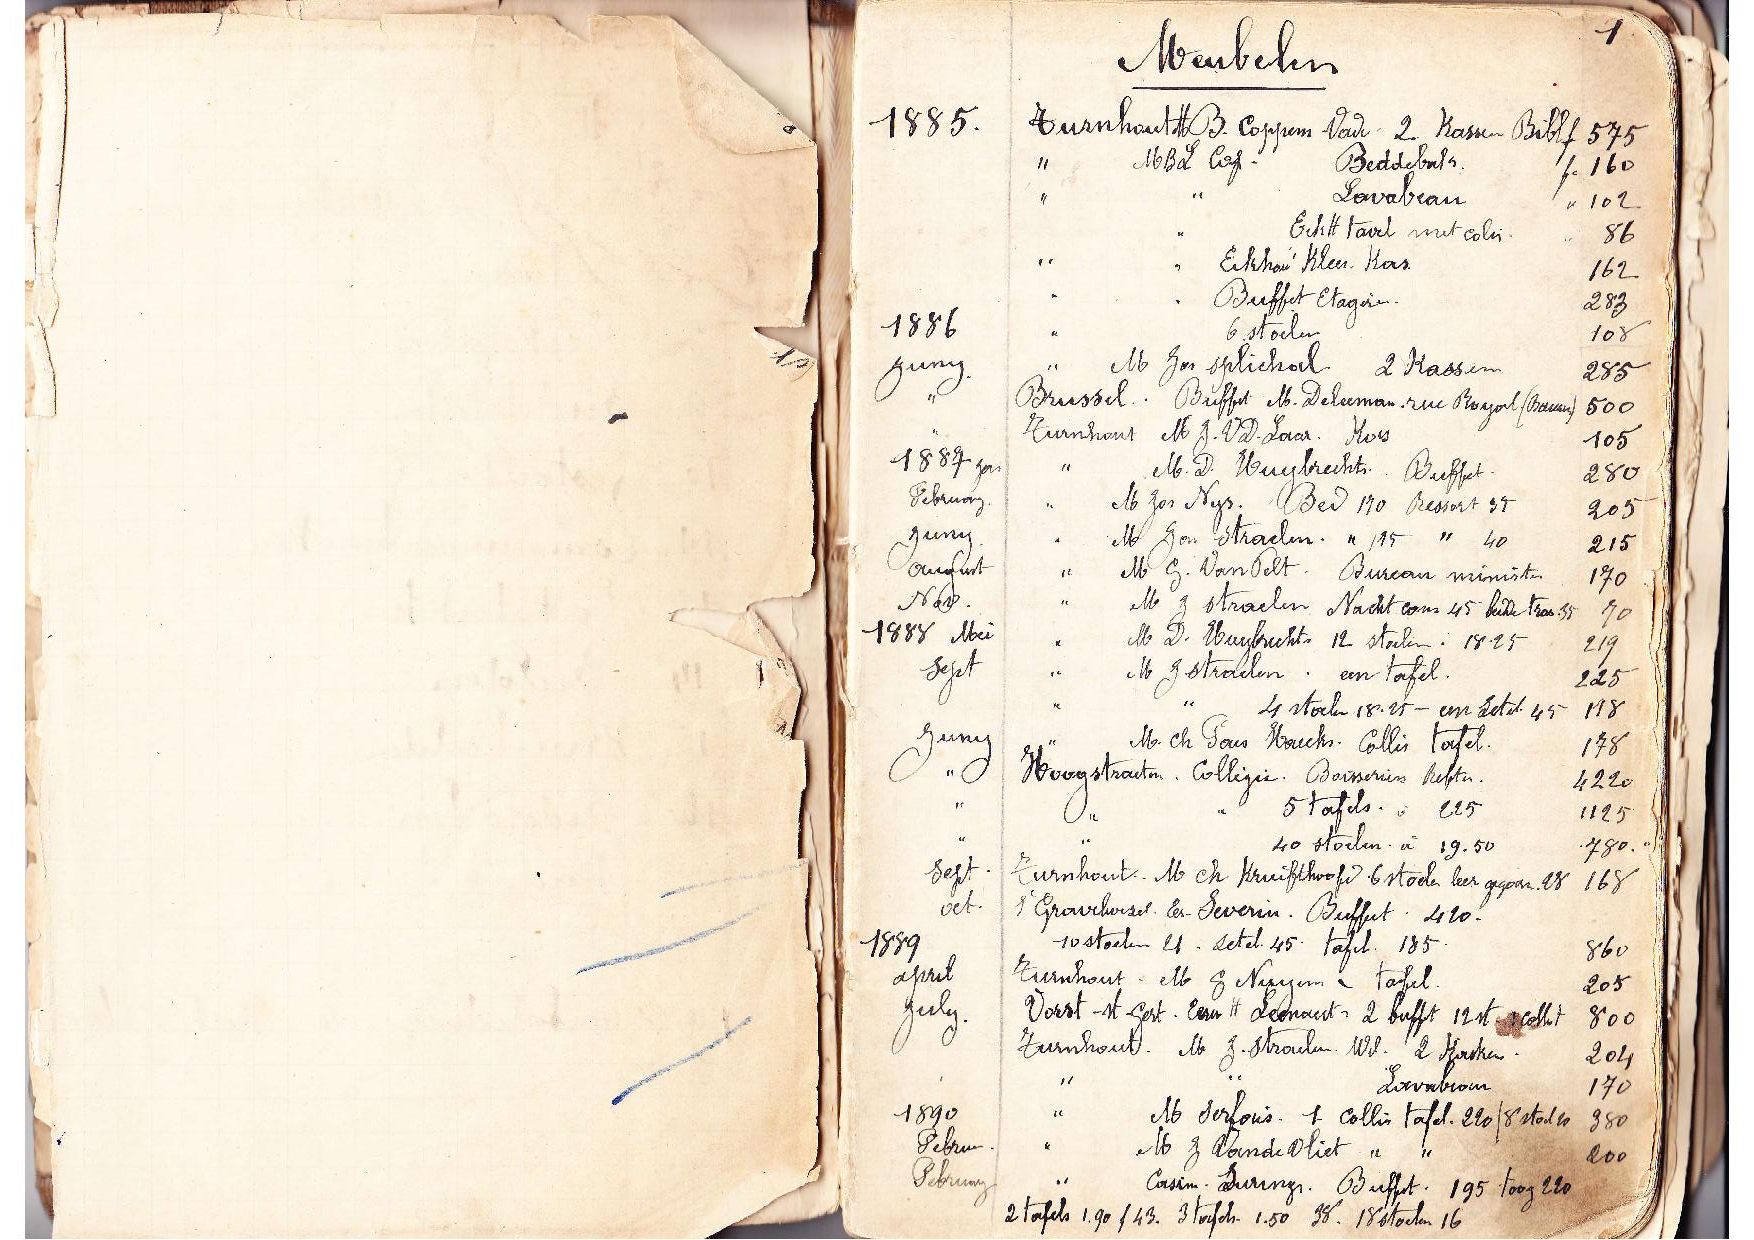 1
Meubelen
1885. Turnhout B. Coppens Vad. 2. Kassen Bibl f 575
" M B L Cof. Beddebak. f. 160
" " Lavabeau " 102
" EikH tavel met colis. " 86
" " Eikhou Kleer. Kas. 162
" " Buffet Etagere. 283
1886 " 6 stoelen 108
Juny. " M Jos Splichal 2 Kassen 285
" Brussel. Buffet M. Deleeman. rue Royal 500
" Turnhout M J. VD. Laar. Kas 105
1887 Jan " M. D. Huybrechts. Buffet. 280
February. " M Jos Nys. Bed 170 Ressort 35 205
Juny. " M Jos Straelen. " 175 " 40 215
August " M G. Van Pelt. Bureau ministre 170
Nov. " M J Straelen Nacht 45 35 70
1888 Mei " M D. Huybrechts 12 stoelen à 18.25 219
Sept " M J Straelen. een tafel. 225
" " 4 stoelen 18.25 – een Setel 45 118
Juny " M. Ch Haeckx. Collis tafel. 178
" Hoogstraeten. Collegie. Boisserien Refter. 4220
" " " 5 tafels. à 225 1125
" " 40 stoelen. à 19.50 780.
Sept. Turnhout. M Ch Kruifthoofd. 6 stoelen leer 28 168
oct. S' Gravheisel. Severin. Buffet. 420.
1889 10 stoelen 21. Setel. 45. tafel. 185. 860
april Turnhout. M J Nuyens tafel. 205
July. Vorst-St Gert. H Leenaert 2 buffet 12 st collis 800
Turnhout. M J. Straelen. Wd. 2 Kasken. 204
" " Lavabeau 170
1890 " M Serfois. 1 collis tafel. 220/8 stoel 20 380
Februa. " M J Vande Vliet " " 200
February " Casim. Buffet. 195 toog 220
2 tafels 1.90 / 43. 3 tafels. 1.50 38. 18 stoelen 16